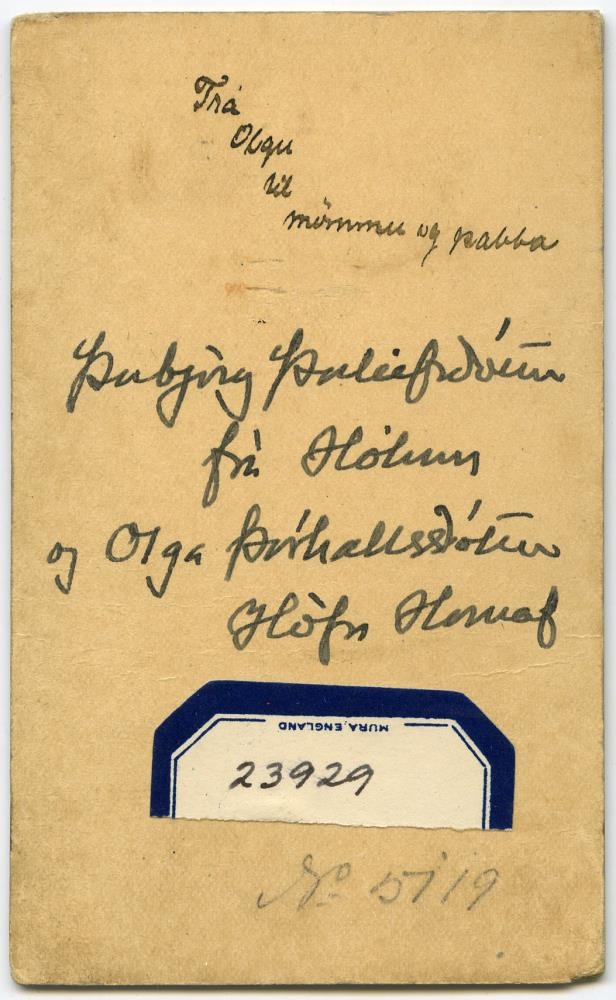 Frá
Olgu
til
mömmu og pabba
Þorbjörg Þorleifsdóttir
frá Hólum
og Olga Þórhallsdóttir
Höfn Hornaf
MURA, ENGLAND
23929
No 15119